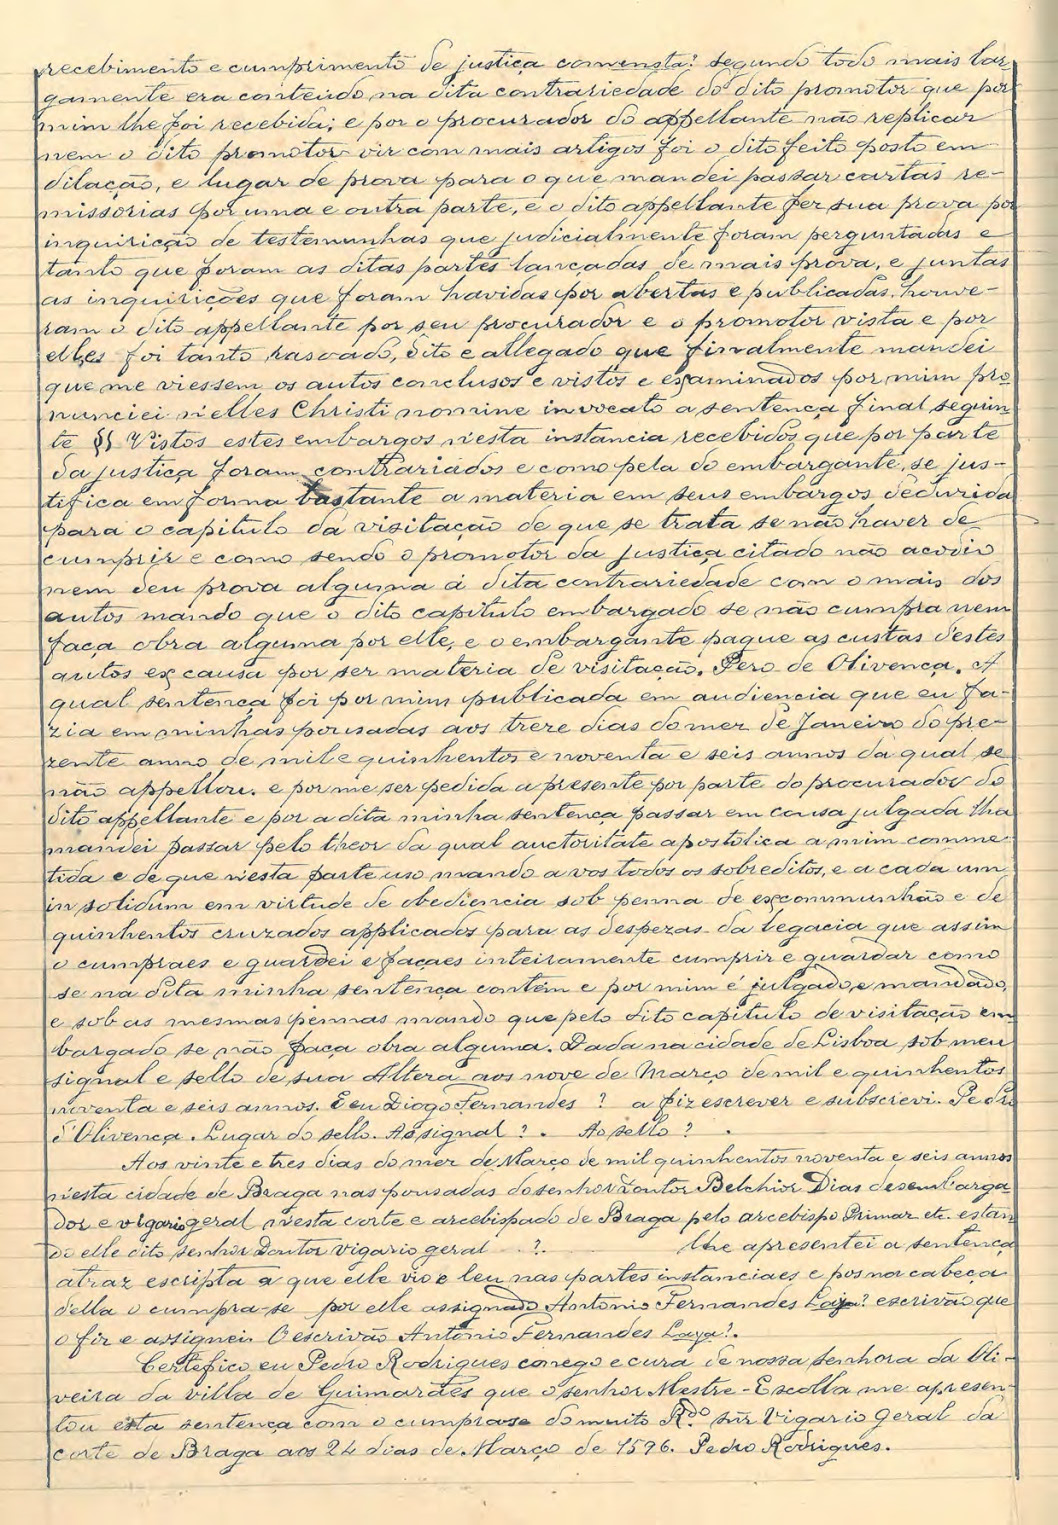 recebimento e cumprimento de justiça comensta? segundo todo mais lar-
gamente era conteúdo na dita contrariedade do dito promotor que por
mim lhe foi recebida; e por o procurador do appellante não replicar
nem o dito promotor vir com mais artigos foi o dito feito posto em
dilação, e lugar de prova para o que mandei passar cartas re-
missorias por uma e outra parte, e o dito appellante fez sua prova por
inquirição de testemunhas que judicialmente foram perguntadas e
tanto que foram as ditas partes lançadas de mais prova, e juntas
as inquirições que foram havidas por abertas e publicadas. houve-
ram o dito appellante por seu procurador e o promotor vista e por
elles foi tanto rasoado, dito e allegado que finalmente mandei
que me viessem os autos conclusos e vistos e examinados por mim pro
nunciei n'elles Christi nomine invocato a sentença final seguin-
te §§ Vistos estes embargos n'esta instancia recebidos que por parte
da justiça foram contrariados e como pela do embargante, se jus-
tifica em forma bastante a materia em seus embargos deduzida
para o capitulo da visitação de que se trata se não haver de
cumprir e como sendo o promotor da justiça citado não acodio
nem deu prova alguma á dita contrariedade com o mais dos
autos mando que o dito capitulo embargado se não cumpra nem
faça obra alguma por elle, e o embargante pague as custas d'estes
autos ex causa por ser materia de visitação. Pero de Olivença. A
qual sentença foi por mim publicada em audiencia que eu fa-
zia em minhas pousadas aos treze dias do mez de Janeiro do pre-
zente anno de mil e quinhentos e noventa e seis annos da qual se
não appellou. e por me ser pedida a presente por parte do procurador do
dito appellante e por a dita minha sentença passar em cousa julgada lha
mandei passar pelo theor da qual auctoritate apostolica a mim comme-
tida e de que n'esta parte uso mando a vos todos os sobreditos, e a cada um
in solidum em virtude de obediencia sob penna de excommunhão e de
quinhentos cruzados applicados para as despezas da legacia que assim
o cumpraes e guardei e façaes inteiramente cumprir e guardar como
se na dita minha sentença contém e por mim é julgado, e mandado,
e sob as mesmas pennas mando que pelo dito capitulo de visitação em-
bargado se não faça obra alguma. Dada na cidade de Lisboa sob meu
signal e sello de sua Alteza aos nove de Março de mil e quinhentos
noventa e seis annos. E eu Diogo Fernandes ? a fiz escrever e subscrevi. Pedro
d'Olivença. Lugar do sello. Ao signal ? . Ao sello ? .
Aos vinte e tres dias do mez de Março de mil quinhentos noventa e seis annos
n'esta cidade de Braga nas pousadas do senhor Doutor Belchior Dias desembarga
dor e vigario geral n'esta corte e arcebispado de Braga pelo arcebispo Primaz etc. estan
do elle dito senhor Doutor vigario geral ..?.. lhe apresentei a sentença
atraz escripta a que elle vio e leu nas partes instanciaes e pos na cabeça
della o cumpra-se por elle assignado Antonio Fernandes Laya? escrivão que
o fiz e assignei. O escrivão Antonio Fernandes Laya?.
Certefico eu Pedro Rodrigues conego e cura de nossa Senhora da Oli-
veira da villa de Guimarães que o senhor Mestre-Escolla me apresen-
tou esta sentença com o cumprase do muito R.do snr Vigario Geral da
corte de Braga aos 24 dias de Março de 1596. Pedro Rodrigues.